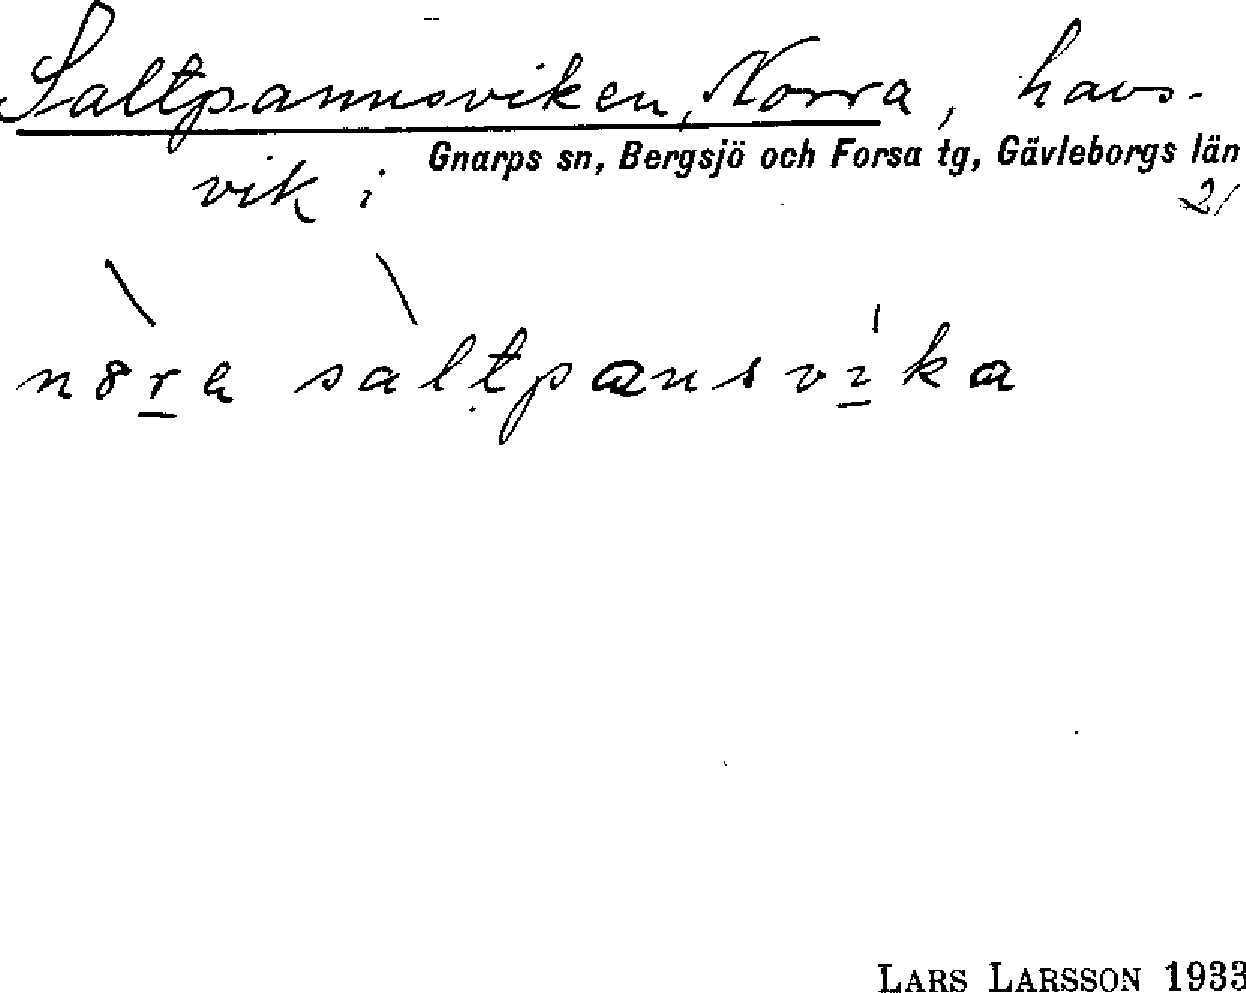 Saltpannsviken, Norra, havs-
Gnarps sn, Bergsjö och Forsa tg, Gävleborgs län
vik i
21
n8ra saltpansvika
LARS LARSSON 1933